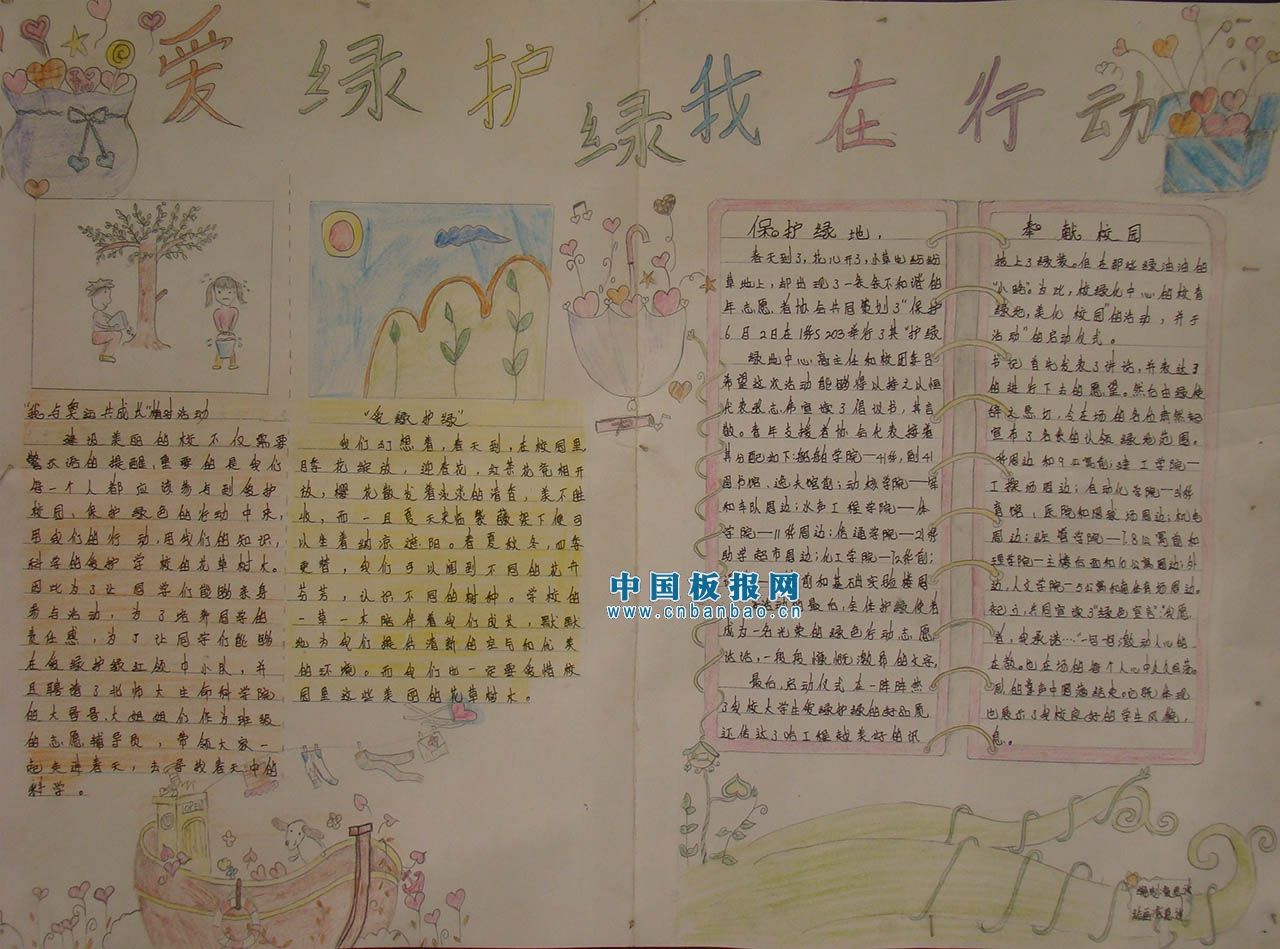 爱绿护绿我在行动
"我与奥运共成长"植树活动
建设美丽的校不仅需要
警示语的提醒,重要的是我们
每一个人都应该参与到爱护
校园、保护绿色的行动中来,
用我们的行动,用我们的知识,
科学的爱护学校的花草树木。
因此为了让同学们能够亲身
参与活动,为了培养同学的
责任感,为了让同学们能够
在爱绿护绿红领巾小队,并
且聘请了北师大生命科学院
的大哥哥、大姐姐们作为班级
的志愿辅导员,带领大家一
起走进春天,去寻找春天中的
科学。
"爱绿护绿"
我们幻想着,春天到,在校园里
阵花绽放,迎春花,
放,樱花散发着淡淡的清香,美不胜
收,而一旦夏天来临紫藤架下便可
以坐着纳凉遮阳。春夏秋冬,四季
更替,我们可以闻到不同的花开
芬芳,认识不同的树种。学校的
一草一木陪伴着我们成长,默默
地为我们提供清新的空气和优美
的环境。而我们也一定要爱惜校
园里这些美丽的花草树木。
保护绿地,
春天到了,花儿开了,小草也
草地上,却出现了一条条不和谐的
年志愿者协会共同策划了"保护
6月2日在1号楼203举行了其"护绿
绿地中心高主任和校团委
希望这次活动能够得以持之以恒
代表张志伟宣读了倡议书,其言
散。青年支援者协会代表接着
其分配如下:船舶学院—41号,
图书馆、逸夫馆前;动核学院—军
和车队周边;水声工程学院—体
学院—11号周边;信通学院—21号
助学超市周边;化工学院—
前和基础实验楼周
活动的最后,全体护绿使者
成为一名光荣的绿色行动志愿
达话,一段段慷慨激昂的文字,
最后,启动仪式在一阵阵热
了我校大学生爱绿护绿的好品质
还传达了哈工程越美好的讯
奉献校园
披上了绿装。但在那些绿油油的
"小路"。为此,校绿化中心和校青
绿地,美化校园的活动,并于
活动"的启动仪式。
书记首先发表了讲话,并表达了
的进行下去的愿望。然后由绿使
宣布了各院的认领绿地范围。
号周边和9公寓前;建工学院—
工操场周边;自动化学院—
周边;经管学院—7.8公寓前和
理学院—主楼后面和10公寓周边;外
边,人文学院—5公寓和
记",共同宣读了"绿色宣言"
者,我承诺……"一句句激动人心的
烈的掌声中圆满结束。它既体现
也展示了我校良好的学生风貌,
息。
OPEN
中国板报网
www.cnbanbao.cn